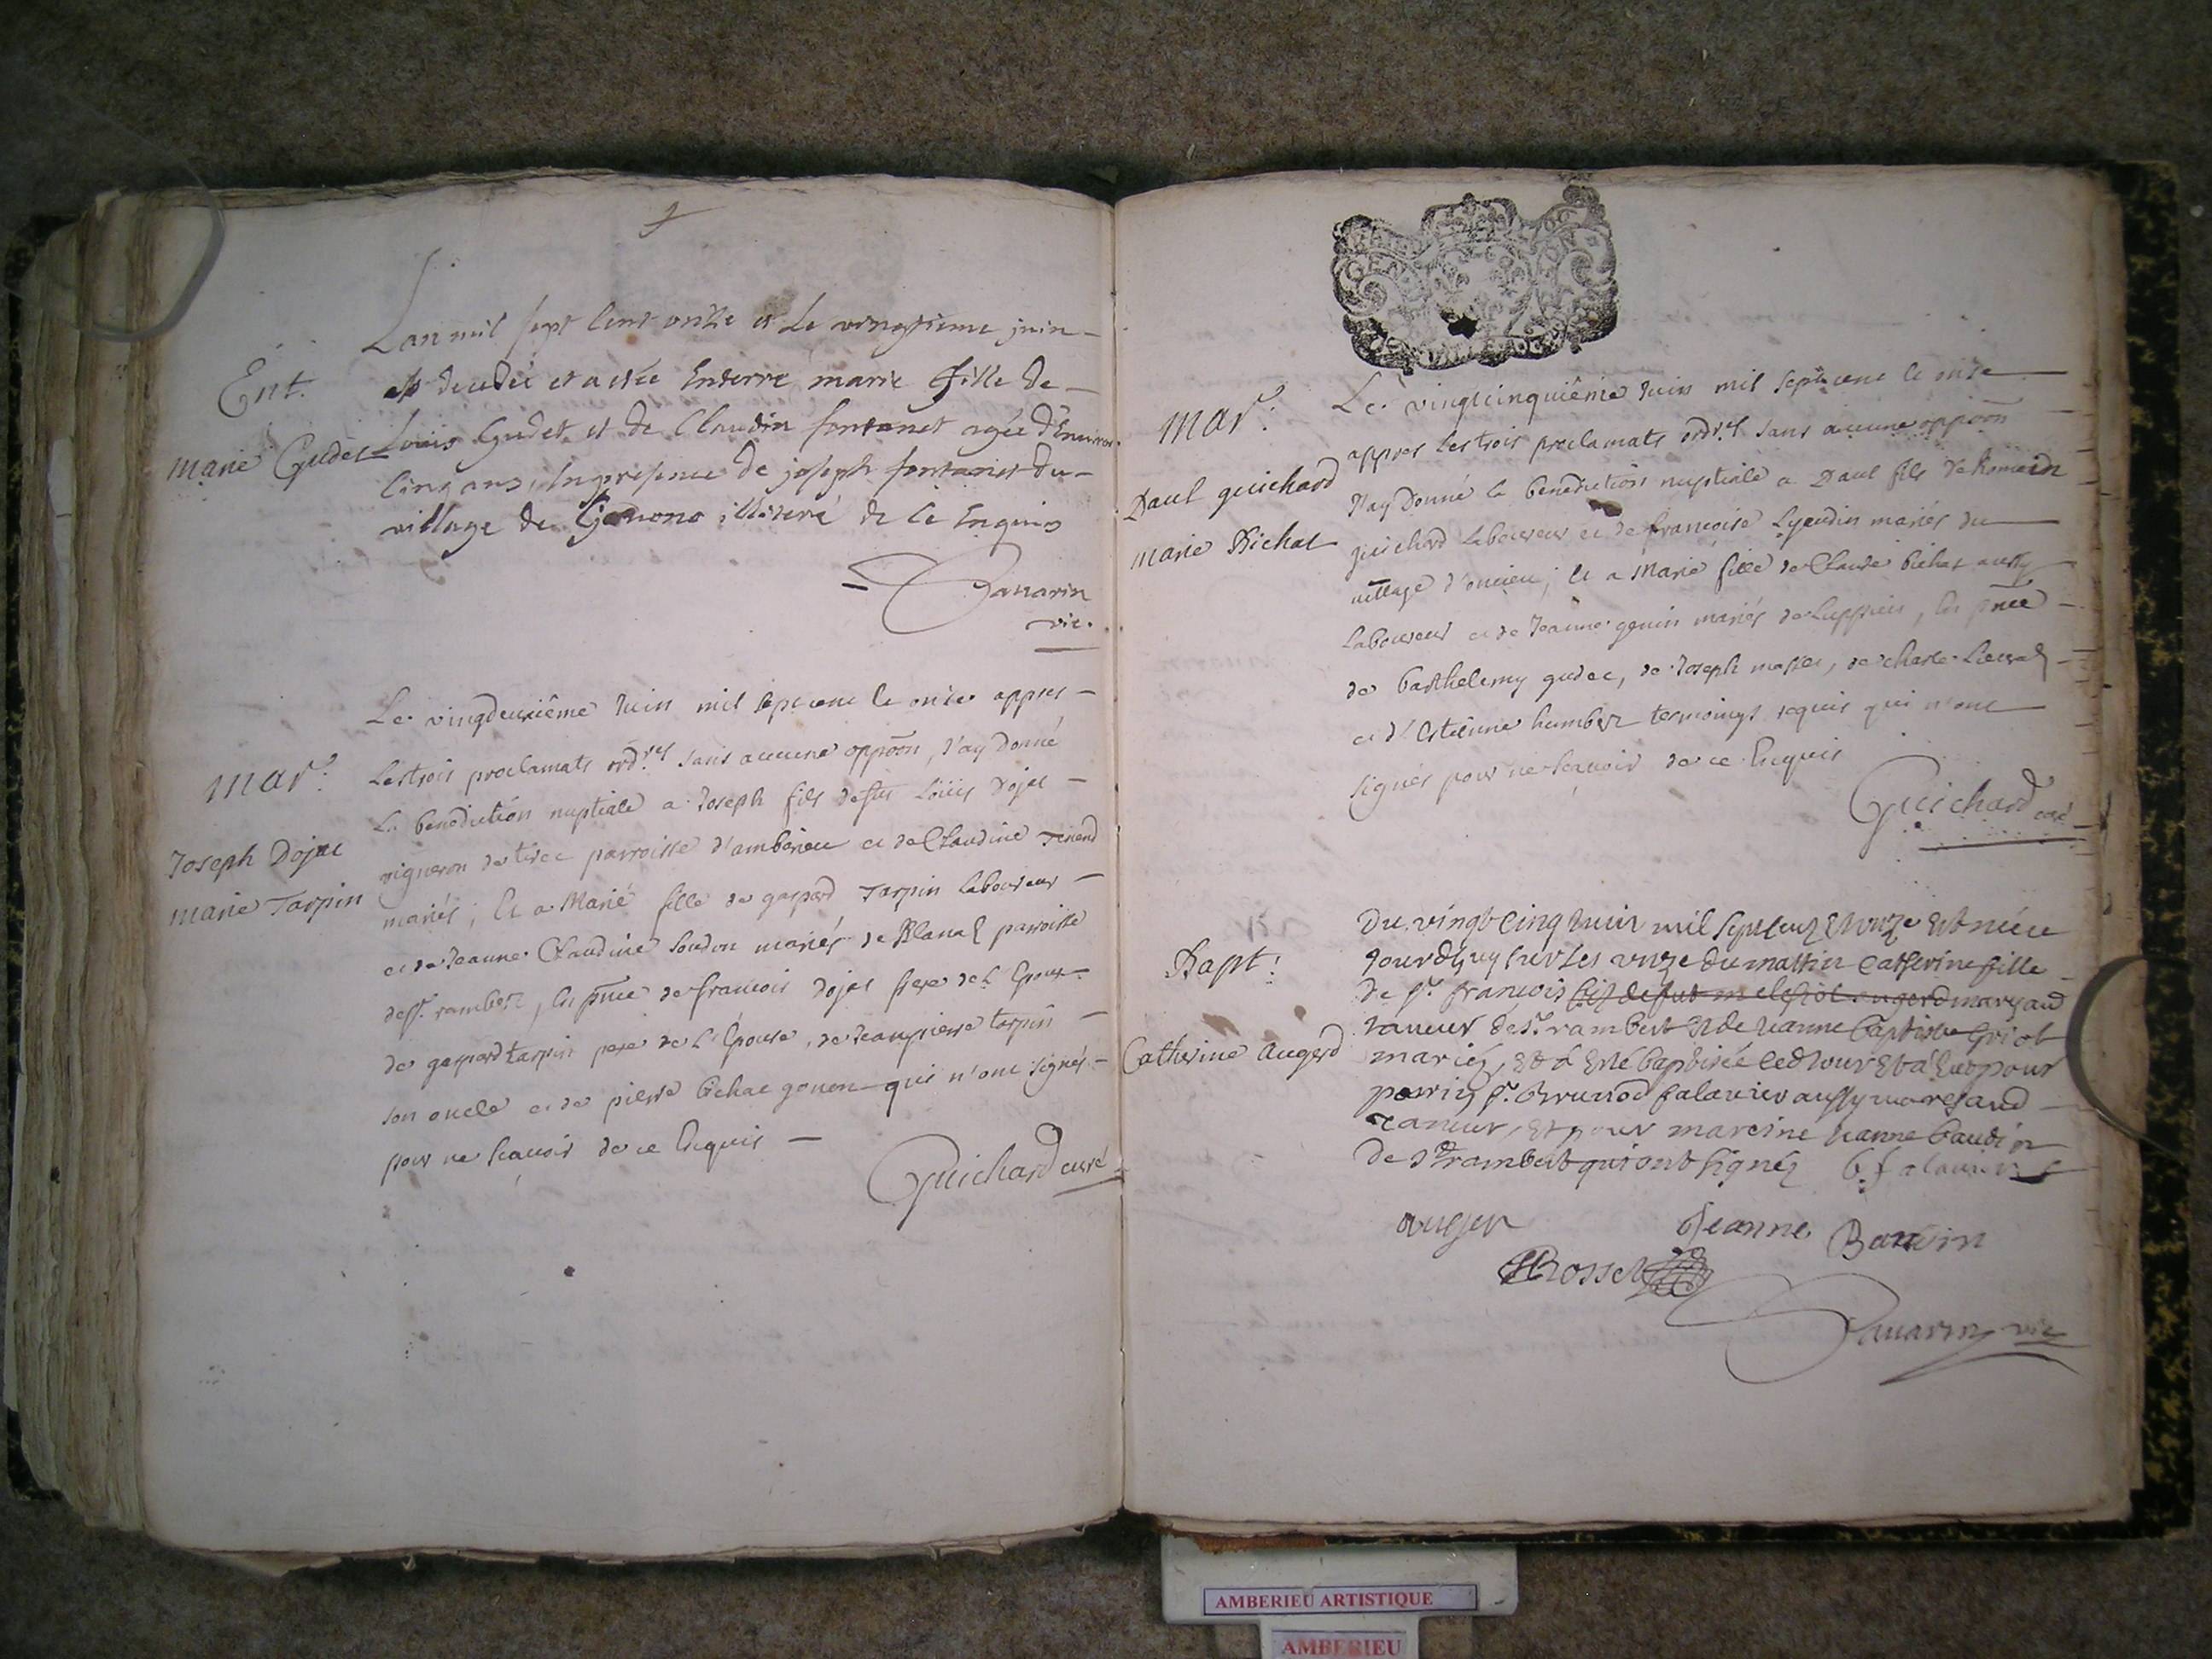 Lan mil sept cent onze et le vingtieme juin
Ent.
est decedée et a etée Enterré marie fille de
marie Gudet
Louis Gudet et de Claudin fontanet agée d'Environ
cinq ans, En presence de joseph fontanet du
village de illiteré de ce Enquis
vic.
Le vingdeuxiême Iuin mil sept cent le onze appres
Mar.
Les trois proclamats ord.res sans aucune oppoõn, J'ay Donné
La benediction nuptiale a Joseph fils de feu Loüis Dojat
Joseph Dojat
vigneron de tiree parroisse d'amberieu et de Claudine Tenend
marie Tarpin
mariés; Et a Marie fille de gaspard Tarpin laboureur
et de Jeanne Claudine mariés de Blanaz parroisse
de St. rambert, En pñce de francois Dojat frere de L'Epoux
de gaspard tarpin pere de L'Epouse, de Jeanpierre tarpin
son oncle et de pierre bichat qui n'ont signés
pour ne scauoir de ce Enquis
Guichard curé
Mar.
Le vingtcinquiême Iuin mil sept cent le onze
appres Les trois proclamats ord.res sans aucune oppoõn
Paul guichard
J'ay Donné la benediction nuptiale a Paul fils de Romain
marie Bichat
guichard Laboureur et de francoise mariés du
village d'oncieu; Et a Marie fille de Claude bichat aussy
Laboureur et de Jeanne genin mariés de Luppieu, En pñce
de barthelemy gudet, de Joseph de charle
et d'Estienne humbert tesmoings requis qui n'ont
signés pour ne scauoir de ce Enquis
Guichard curé
Bapt.
Du vingt cinq Iuin mil sept cent et onze est néee
Jourdhuy sur Les onze du mattin Catherine fille
de Sr. francois fils de fut marchand
Catherine Augerd
taneur de St rambert et de Jeanne baptiste Griot
mariés, et a esté baptisée led Jour et a eut pour
parrin Sr. falavier aussy marchand
taneur, et pour mareine Jeanne baudin
de St rambert qui ont signés b falavier
auger
Jeanne Baudin
Rosset
vic
AMBERIEU ARTISTIQUE
AMBERIEU